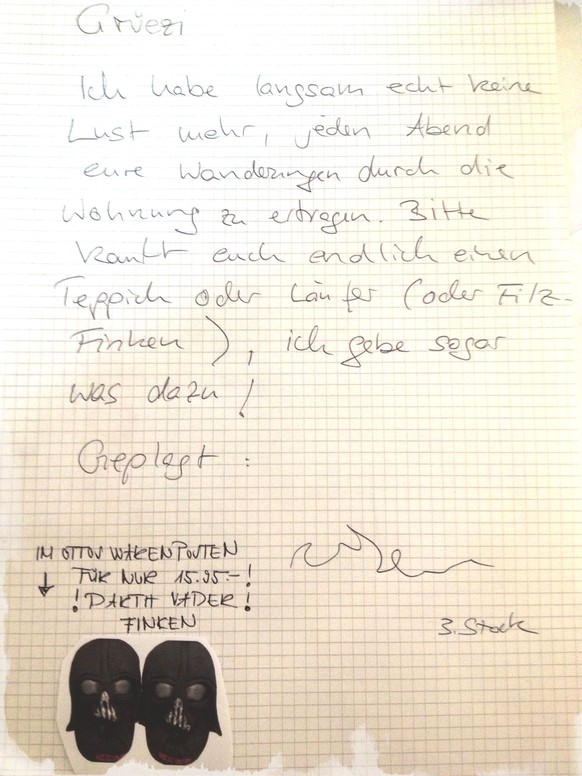 Grüezi
Ich habe langsam echt keine
Lust mehr, jeden Abend
eure Wanderungen durch die
Wohnung zu ertragen. Bitte
kauft euch endlich einen
Teppich oder Läufer (oder Filz-
Finken), ich gebe sogar
was dazu!
Geplagt:
3. Stock
IM OTTOS WARENPOSTEN
FÜR NUR 15.95.-!
! DARTH VADER!
FINKEN